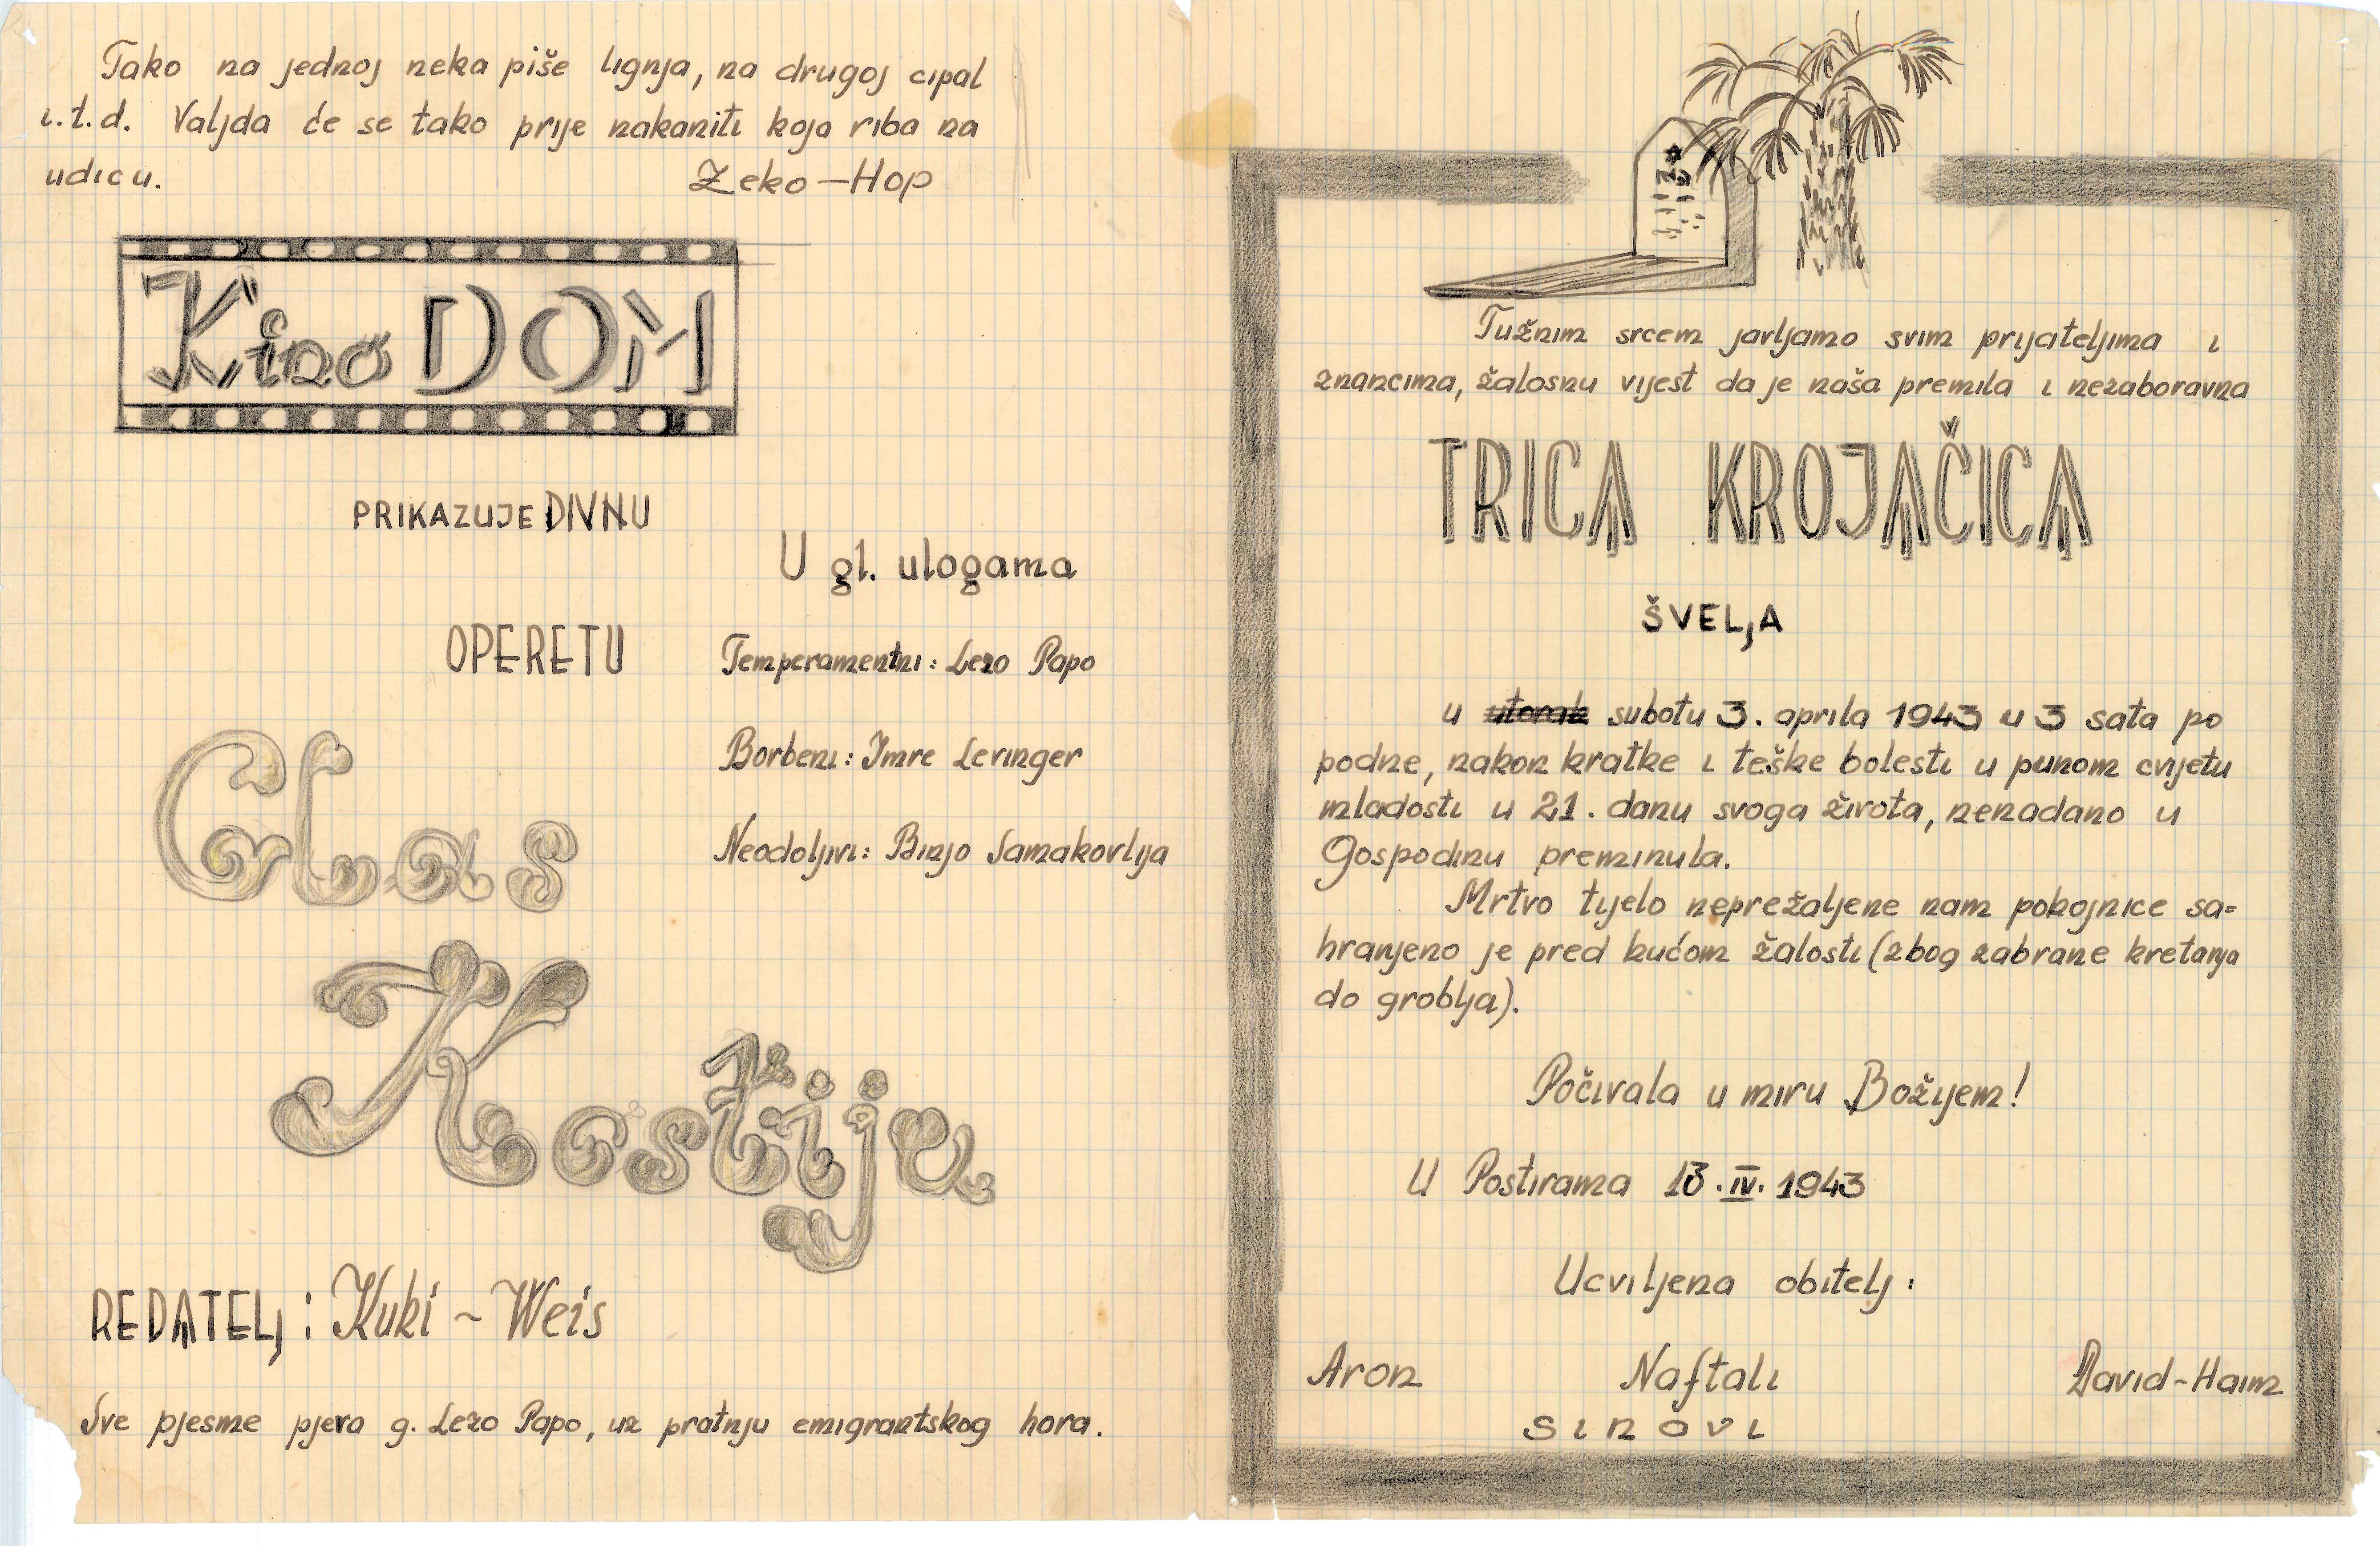 Tako na jednoj neka piše lignja, na drugoj cipal
i.t.d. Valjda će se tako prije nakaniti koja riba na
udicu.
Zeko-Hop
Kino DOM
PRIKAZUJE DIVNU
OPERETU
Glas
Kostiju
U gl. ulogama
Temperamentni: Lezo Papo
Borbeni: Imre Levinger
Neodoljivi: Binjo Samakovlija
REDATELJ: Kuki ~ Weis
Sve pjesme pjeva g. Lezo Papo, uz pratnju emigrantskog hora.
Tužnim srcem javljamo svim prijateljima i
znancima, žalosnu vijest da je naša premila i nezaboravna
TRICA KROJAČICA
ŠVELJA
u utorak subotu 3. aprila 1943 u 3 sata po
podne, nakon kratke i teške bolesti u punom cvijetu
mladosti u 21. danu svoga života, nenadano u
Gospodinu preminula.
Mrtvo tijelo neprežaljene nam pokojnice sa=
hranjeno je pred kućom žalosti (zbog zabrane kretanja
do groblja).
Počivala u miru Božijem!
U Postirama 13.IV.1943
Ucviljena obitelj:
Aron Naftali David-Haim
SINOVI